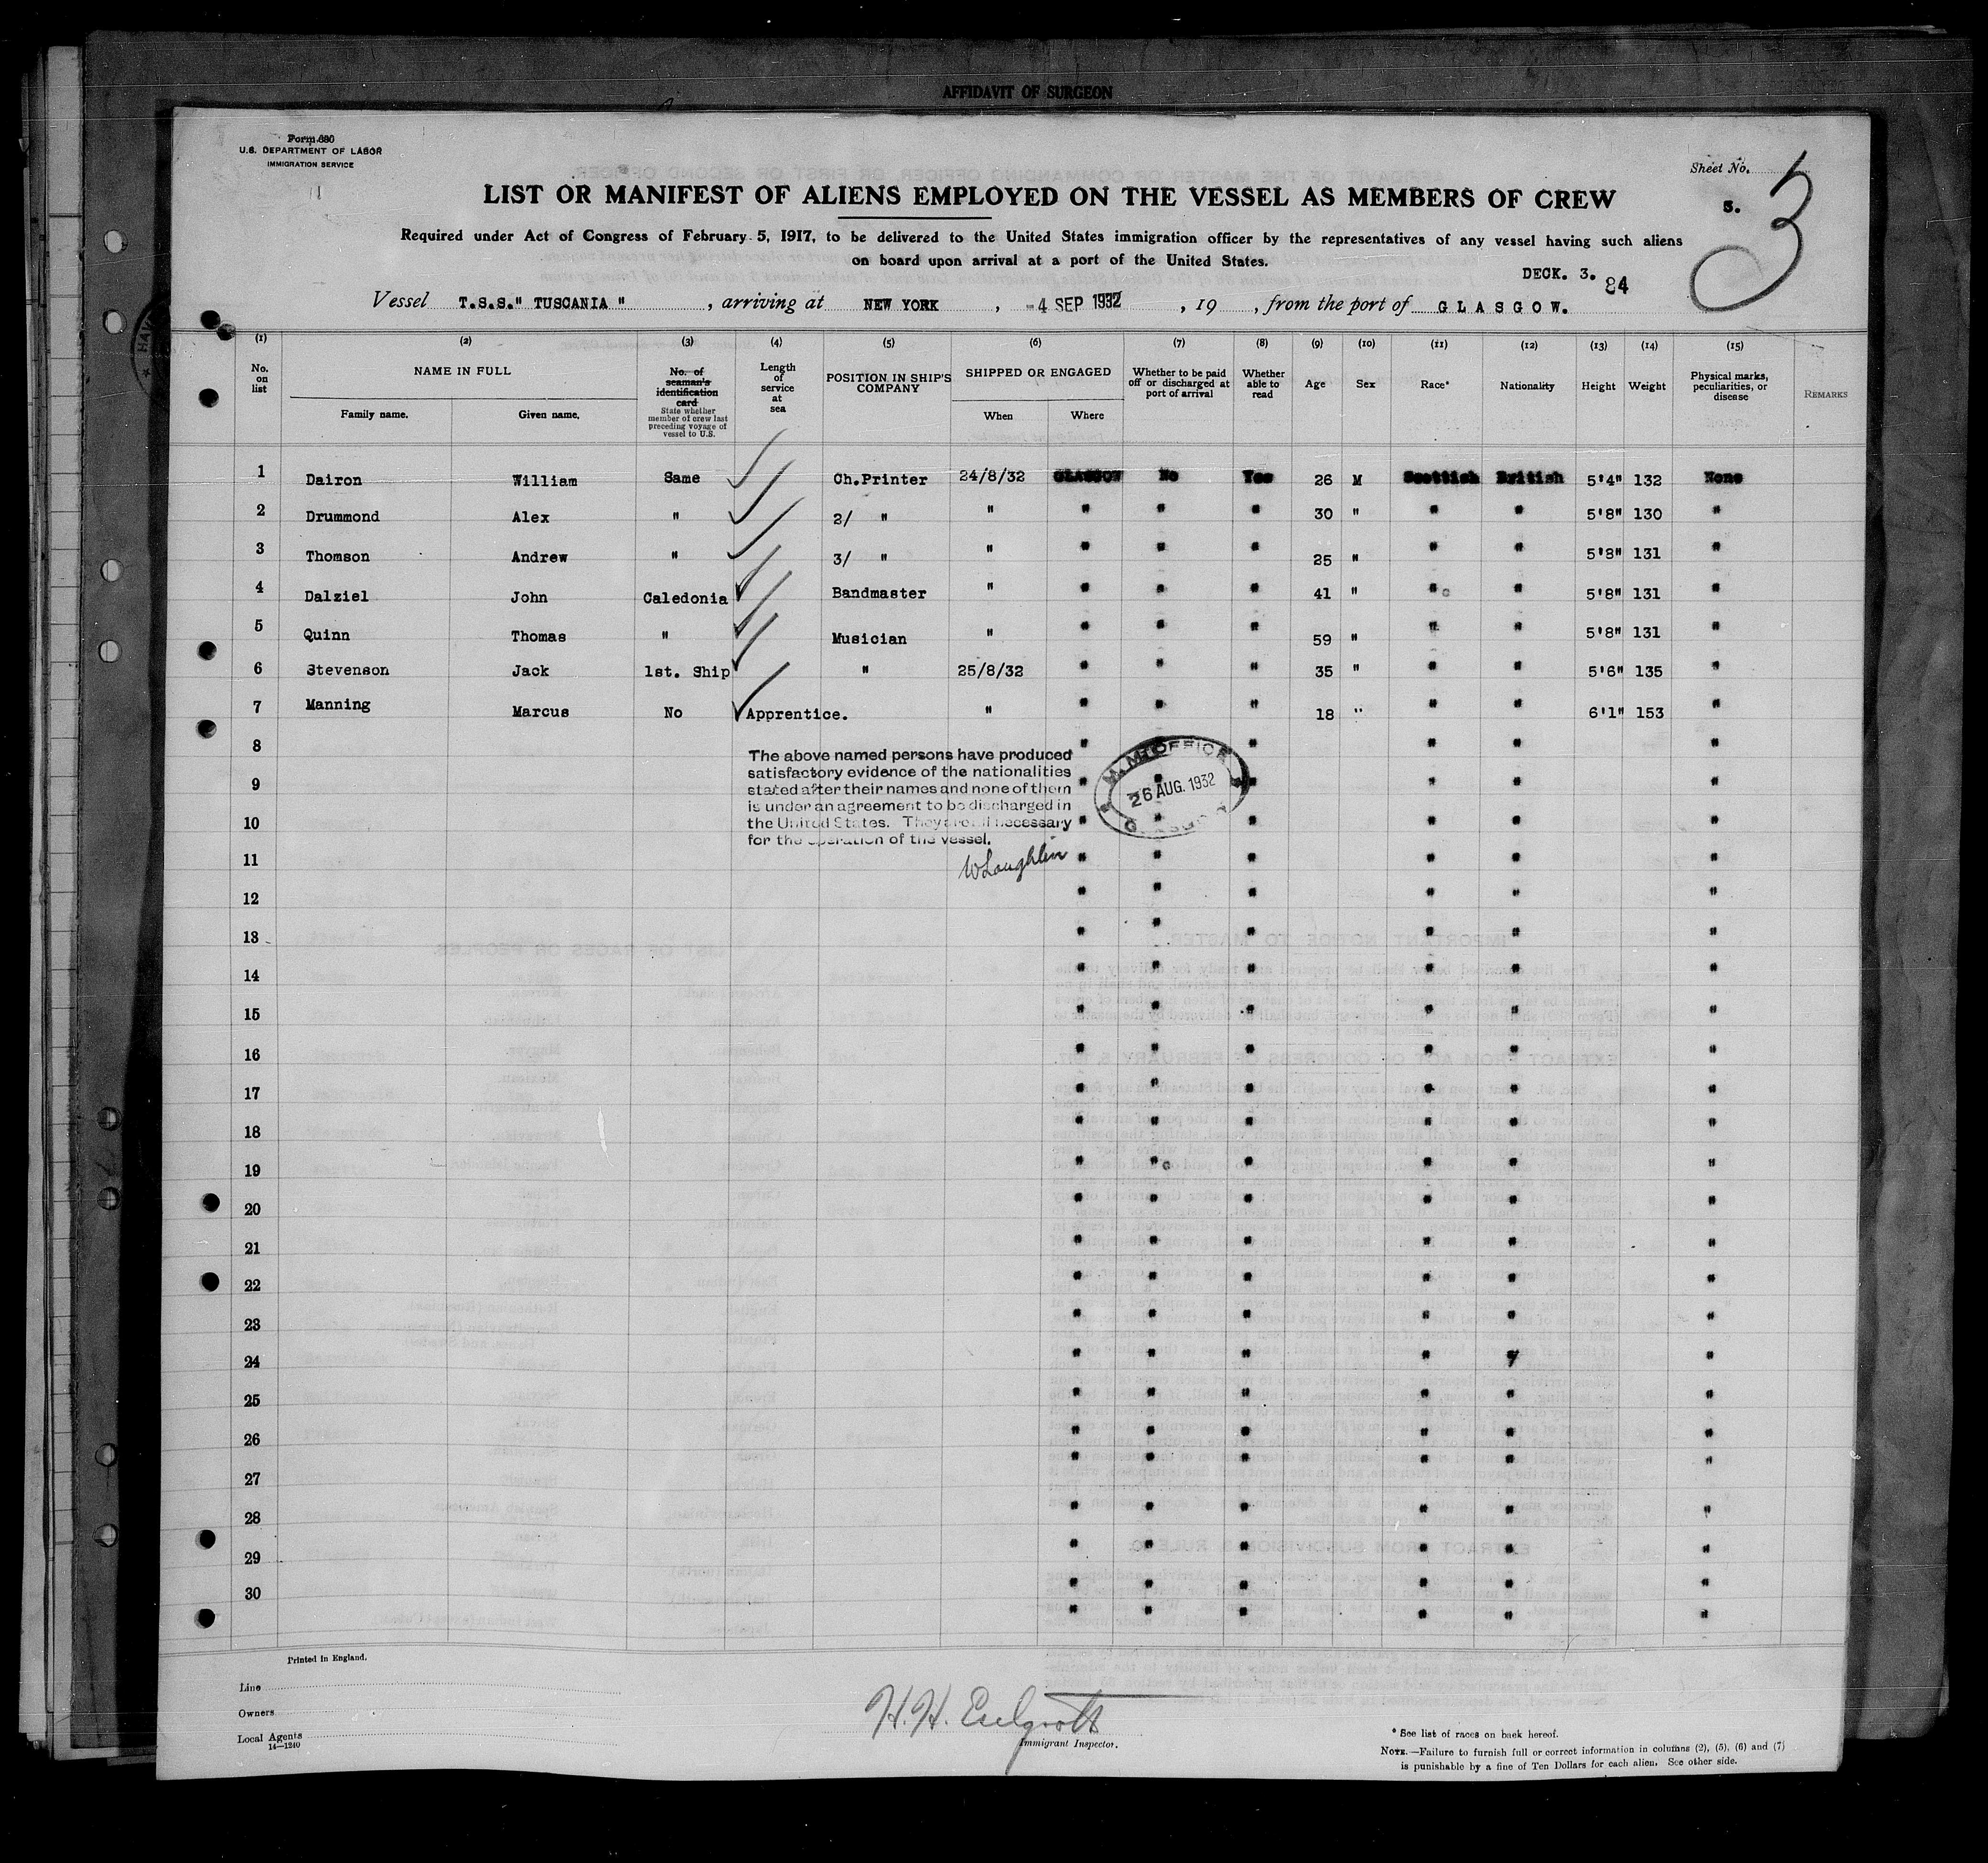 AFFIDAVIT OF SURGEON
Form 680
U.S. DEPARTMENT OF LABOR
IMMIGRATION SERVICE
Sheet No.
3
LIST OR MANIFEST OF ALIENS EMPLOYED ON THE VESSEL AS MEMBERS OF CREW
3.
Required under Act of Congress of February 5, 1917, to be delivered to the United States immigration officer by the representatives of any vessel having such aliens
on board upon arrival at a port of the United States.
DECK. 3. 84
Vessel T.S.S." TUSCANIA " , arriving at NEW YORK , -4 SEP 1932 , 19 , from the port of GLASGOW.
(1) (2) (3) (4) (5) (6) (7) (8) (9) (10) (11) (12) (13) (14) (15)
No. on list
NAME IN FULL
Family name. Given name.
No. of seaman's identification card
State whether member of crew last preceding voyage of vessel to U.S.
Length of service at sea
POSITION IN SHIP'S COMPANY
SHIPPED OR ENGAGED
When Where
Whether to be paid off or discharged at port of arrival
Whether able to read
Age Sex Race* Nationality Height Weight
Physical marks, peculiarities, or disease
REMARKS
1 Dairon William Same Ch.Printer 24/8/32 GLASGOW No Yes 26 M Scottish British 5'4" 132 None
2 Drummond Alex " 2/ " " " " " 30 " " " 5'8" 130 "
3 Thomson Andrew " 3/ " " " " " 25 " " " 5'8" 131 "
4 Dalziel John Caledonia Bandmaster " " " " 41 " " " 5'8" 131 "
5 Quinn Thomas " Musician " " " " 59 " " " 5'8" 131 "
6 Stevenson Jack 1st. Ship " 25/8/32 " " " 35 " " " 5'6" 135 "
7 Manning Marcus No Apprentice. " " " " 18 " " " 6'1" 153 "
8 " " " " "
9 " " " " " "
10 " " " " " "
11 " " " " " "
12 " " " " " "
13 " " " " " "
14 " " " " " "
15 " " " " " "
16 " " " " " "
17 " " " " " "
18 " " " " " "
19 " " " " " "
20 " " " " " "
21 " " " " " "
22 " " " " " "
23 " " " " " "
24 " " " " " "
25 " " " " " "
26 " " " " " "
27 " " " " " "
28 " " " " " "
29 " " " " " "
30 " " " " " "
The above named persons have produced
satisfactory evidence of the nationalities
stated after their names and none of them
is under an agreement to be discharged in
the United States. They are all necessary
for the operation of the vessel.
M.M. OFFICE
26 AUG. 1932
GLASGOW
WLoughlin
Printed in England.
Line
Owners
Local Agents
14—1240
Immigrant Inspector.
* See list of races on back hereof.
NOTE.—Failure to furnish full or correct information in columns (2), (5), (6) and (7)
is punishable by a fine of Ten Dollars for each alien. See other side.